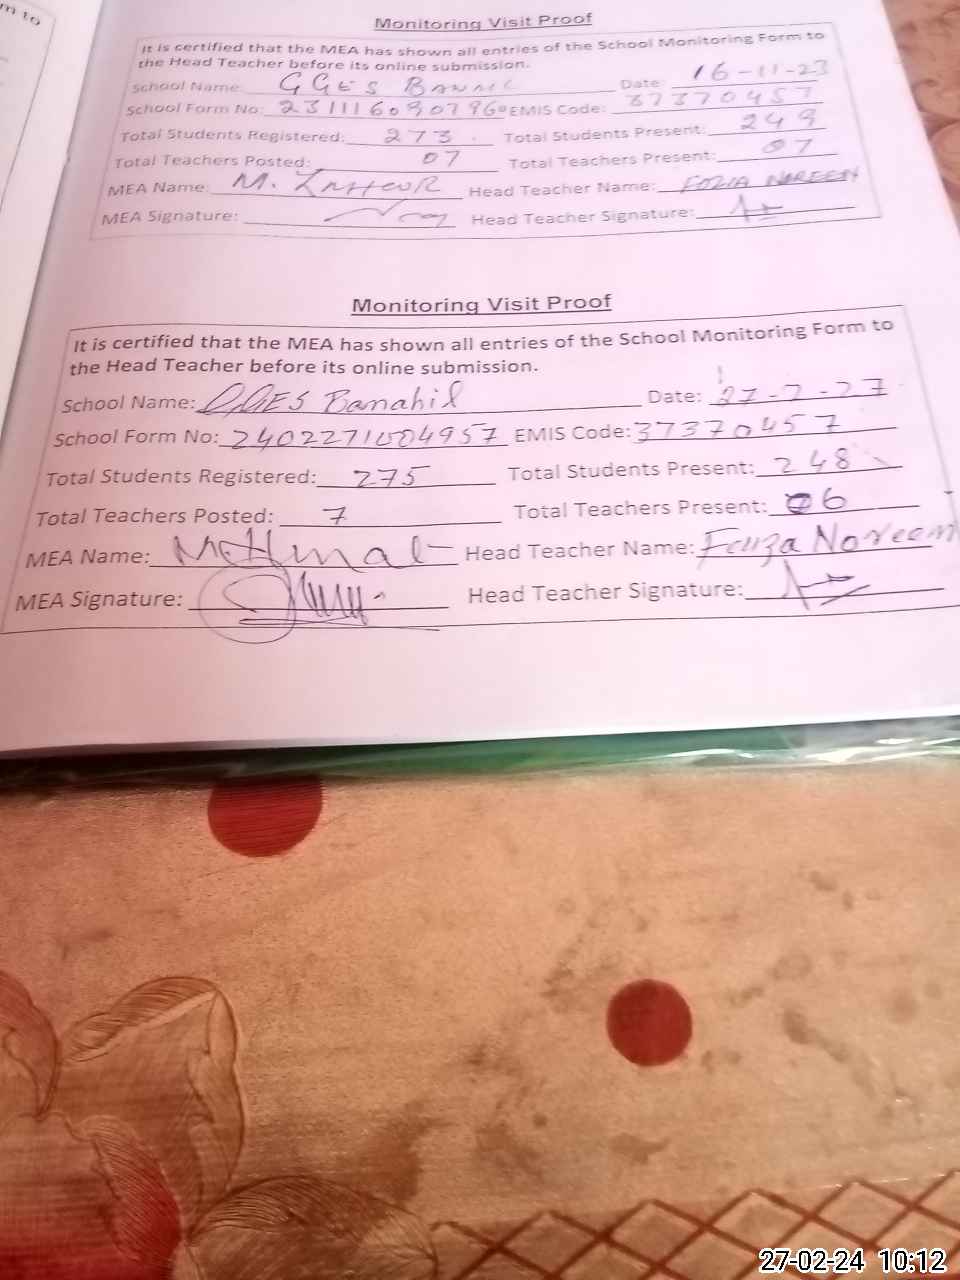 m to
Monitoring Visit Proof
It is certified that the MEA has shown all entries of the School Monitoring Form to
the Head Teacher before its online submission.
School Name: GGES Date: 16-11-23
School Form No: EMIS Code: 37370457
Total Students Registered: 273 Total Students Present: 249
Total Teachers Posted: 07 Total Teachers Present: 07
MEA Name: M. Head Teacher Name: FOZIA NAREEN
MEA Signature: Head Teacher Signature:
Monitoring Visit Proof
It is certified that the MEA has shown all entries of the School Monitoring Form to
the Head Teacher before its online submission.
School Name: GGES Banahil Date: 27-2-27
School Form No: 2402271004957 EMIS Code: 37370457
Total Students Registered: 275 Total Students Present: 248
Total Teachers Posted: 7 Total Teachers Present: 06
MEA Name: Head Teacher Name: Noreem
MEA Signature: Head Teacher Signature:
27-02-24 10:12